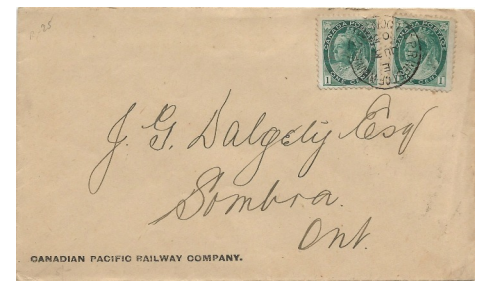 CANADA POSTAGE CANADA POSTAGE
1 ONE CENT 1
J. G. Dalgety Esq
Sombra.
Ont.
CANADIAN PACIFIC RAILWAY COMPANY.